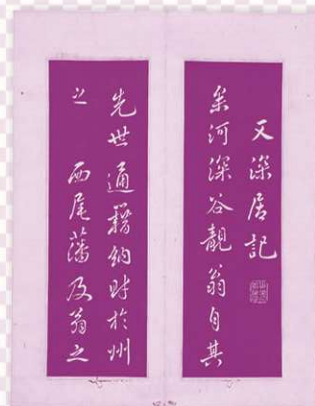 又深居記
参河深谷靚翁自其
先世通籍納財於州
之 西尾藩及翁之